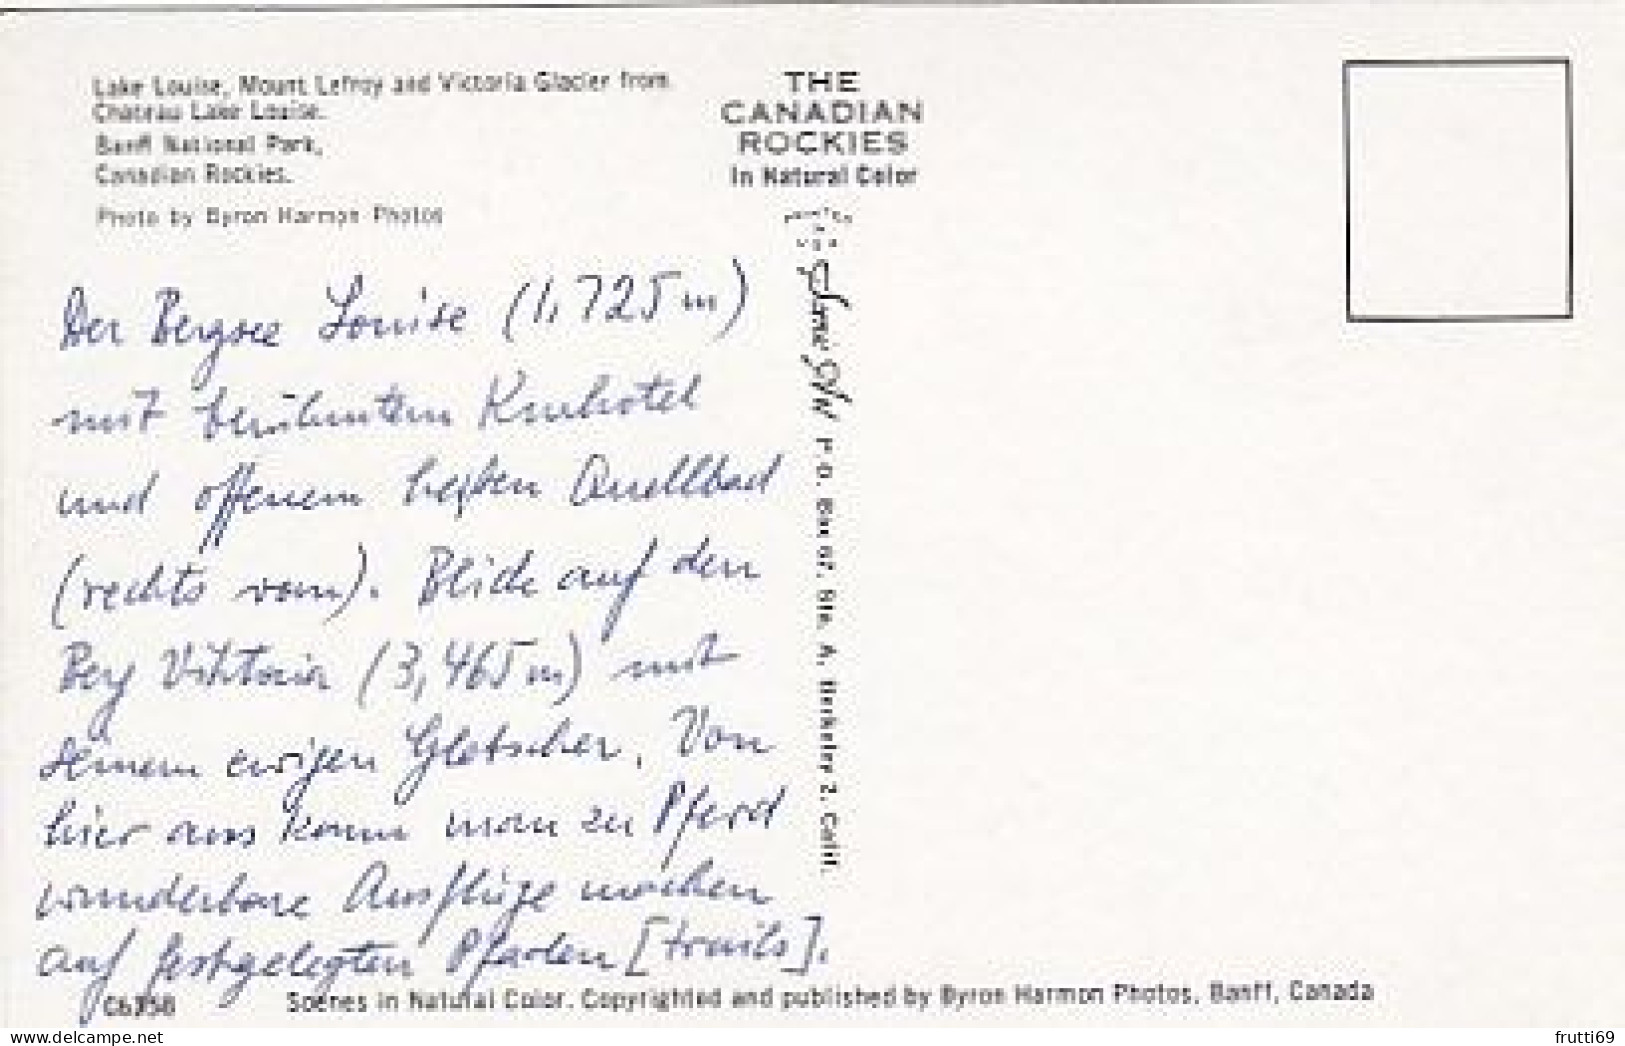 Lake Louise, Mount Lefroy and Victoria Glacier from
Chateau Lake Louise.
Banff National Park,
Canadian Rockies.
Photo by Byron Harmon Photos
THE
CANADIAN
ROCKIES
in Natural Color
Der Bergsee Louise (1,725 m)
mit berühmtem Kurhotel
und offenem heißen Quellbad
(rechts vorn). Blick auf den
Berg Viktoria (3,465 m) mit
seinem ewigen Gletscher. Von
hier aus kann man zu Pferd
wunderbare Ausflüge machen
auf festgelegten Pfaden [trails].
P.O. Box Ste. A, Berkeley 2, Calif.
C6358
Scenes in Natural Color. Copyrighted and published by Byron Harmon Photos, Banff, Canada
www.delcampe.net
frutti69